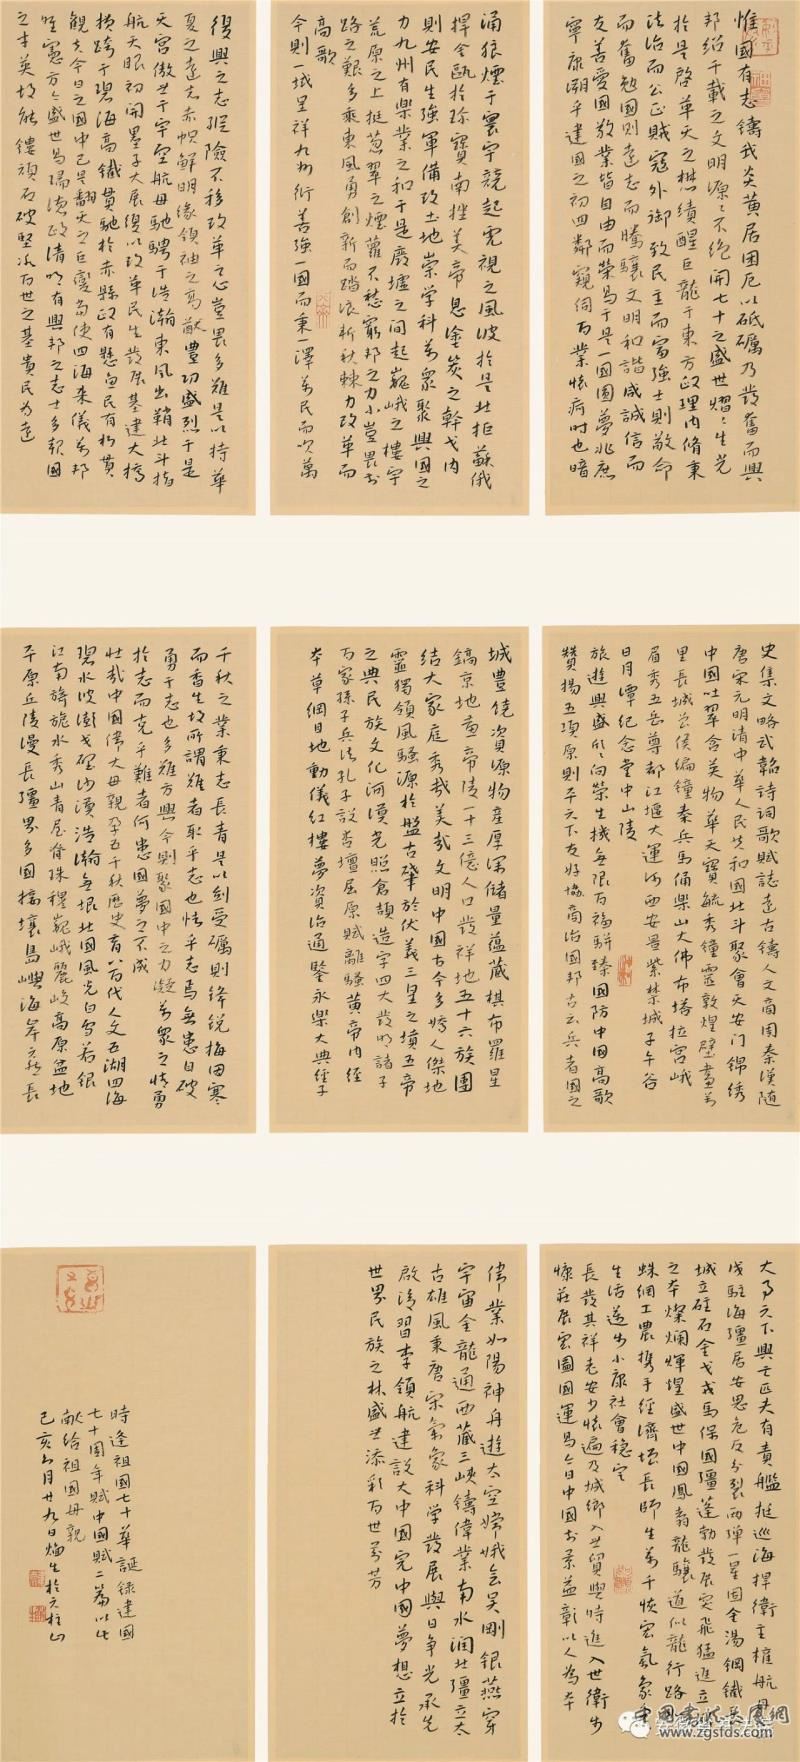 惟國有志鑄我炎黃居困厄以砥礪乃發奮而興
邦紹千載之文明源源不絕開七十之盛世熠熠生光
於是啓革天之懋績醒巨龍于東方政理內脩秉
法治而公正賊寇外御致民主而富強士則敬命
而奮勉國則遠志而騰驤文明和諧咸誠信而
友善愛國敬業皆自由而榮焉于是一國圓夢兆庶
寧康溯乎建國之初四鄰窺伺百業恢痏時也暗
涌狼煙于寰宇競起虎視之風波於是北拒蘇俄
捍金甌於珍寶南挫美帝息塗炭之幹戈內
則安民生強軍備改土地崇学科萬眾聚興國之
力九州有樂業之和于是廢墟之間起巍峨之樓宇
荒原之上挺蔥翠之煙蘿不愁窮邦之力小豈畏前
路之艱多乘東風勇創新而踏浪斬秋棘力改革而
高歌
今則一域呈祥九州衍善強一國而秉一澤萬民而吹萬
復興之志艱險不移改革之心豈畏多難是以持華
夏之遠志赤幟鮮明緣領袖之高猷豐功盛烈于是
天宮傲世于宇空航母馳騁于浩瀚東風出鞘北斗指
航天眼初開墨子大展復以改革民生發展基建大橋
橫跨于碧海高鐵貫馳於赤縣政有懸魚民有朽貫
觀夫今日之國中已是翻天之巨變苟使四海來儀萬邦
旺憲方今盛世昌陽德政清明有興邦之志士多報國
之才英故能鏤頑石破堅冰百世之基貴民為遠
千秋之業秉志長青是以劍受礪則鋒銳梅因寒
而香生故所謂難者取乎志也恒乎志焉無患自破
勇于志也多難方興今則聚國中之力凝萬眾之情勇
於志而克乎難者何患國夢之不成
壯哉中國偉大母親孕五千秋歷史育八百代人文五湖四海
碧水波澎戈壁沙漠浩瀚無垠北國風光白雪若銀
江南旖旎水秀山青屋脊珠穆巍峨麗峻高原盆地
平原丘陵漫長疆界多國接壤島嶼海岸六熊長
城豊饒資源物產厚深儲量蘊藏棋布羅星
鎬京地畫帝陵一十三億人口發祥地五十六族團
結大家庭秀哉美哉文明中國古今多嬌人傑地
靈獨領風騷源於盤古肇於伏義三皇之墳五帝
之典民族文化河漢光照倉頡造字四大發明諸子
百家孫子兵法孔子說杏壇屈原賦離騷黃帝內經
本草綱目地動儀紅樓夢資治通鑒永樂大典經子
史集文略武韜詩詞歌賦誌遠古鑄人文商周秦漢隨
唐宋元明清中華人民共和國北斗聚會天安门錦绣
中國吐翠含英物華天寶毓秀鐘靈敦煌壁畫万
里長城曾侯編鐘秦兵馬俑樂山大佛布塔拉宮峨
眉秀五岳尊都江堰大運河西安景紫禁城子午谷
日月潭紀念堂中山陵
旅遊興盛欣向榮生機無限百福駢臻國防中國高歌
贊揚五項原則平天下友好協商治國邦古云兵者國之
大事天下興亡匹夫有責艦挺巡海捍衛主權航母
戍駐海疆居安思危反分裂兩彈一星固金湯鋼鐵長
城立砫石金戈戎馬保國疆蓬勃發展突飛猛進立
之本燦爛輝煌盛世中國鳳翥龍驤道似龍行路
蛛網工農携手經濟增長師生萬千恢宏氣象
生活逐步小康社會穩定
長發其祥老安少懷遍及城鄉入世貿與時進入世衛步
慷莊展宏圖國運昌今日中國前景益彰以人為本
偉業如陽神舟遊太空嫦娥會吴剛銀燕穿
宇宙金龍通西藏三峽鑄偉業南水润北疆立太
古雄風秉唐宋氣象科学發展與日争光承先
啟後習李領航建設大中國完中國夢想立於
世界民族之林盛世添彩百世芬芳
時逢祖國七十華誕錄建國
七十周年賦中國賦二篇以此
献給祖國母親
己亥六月廿九日煥生於天柱山
中國書法篆刻網
www.zgsfds.com